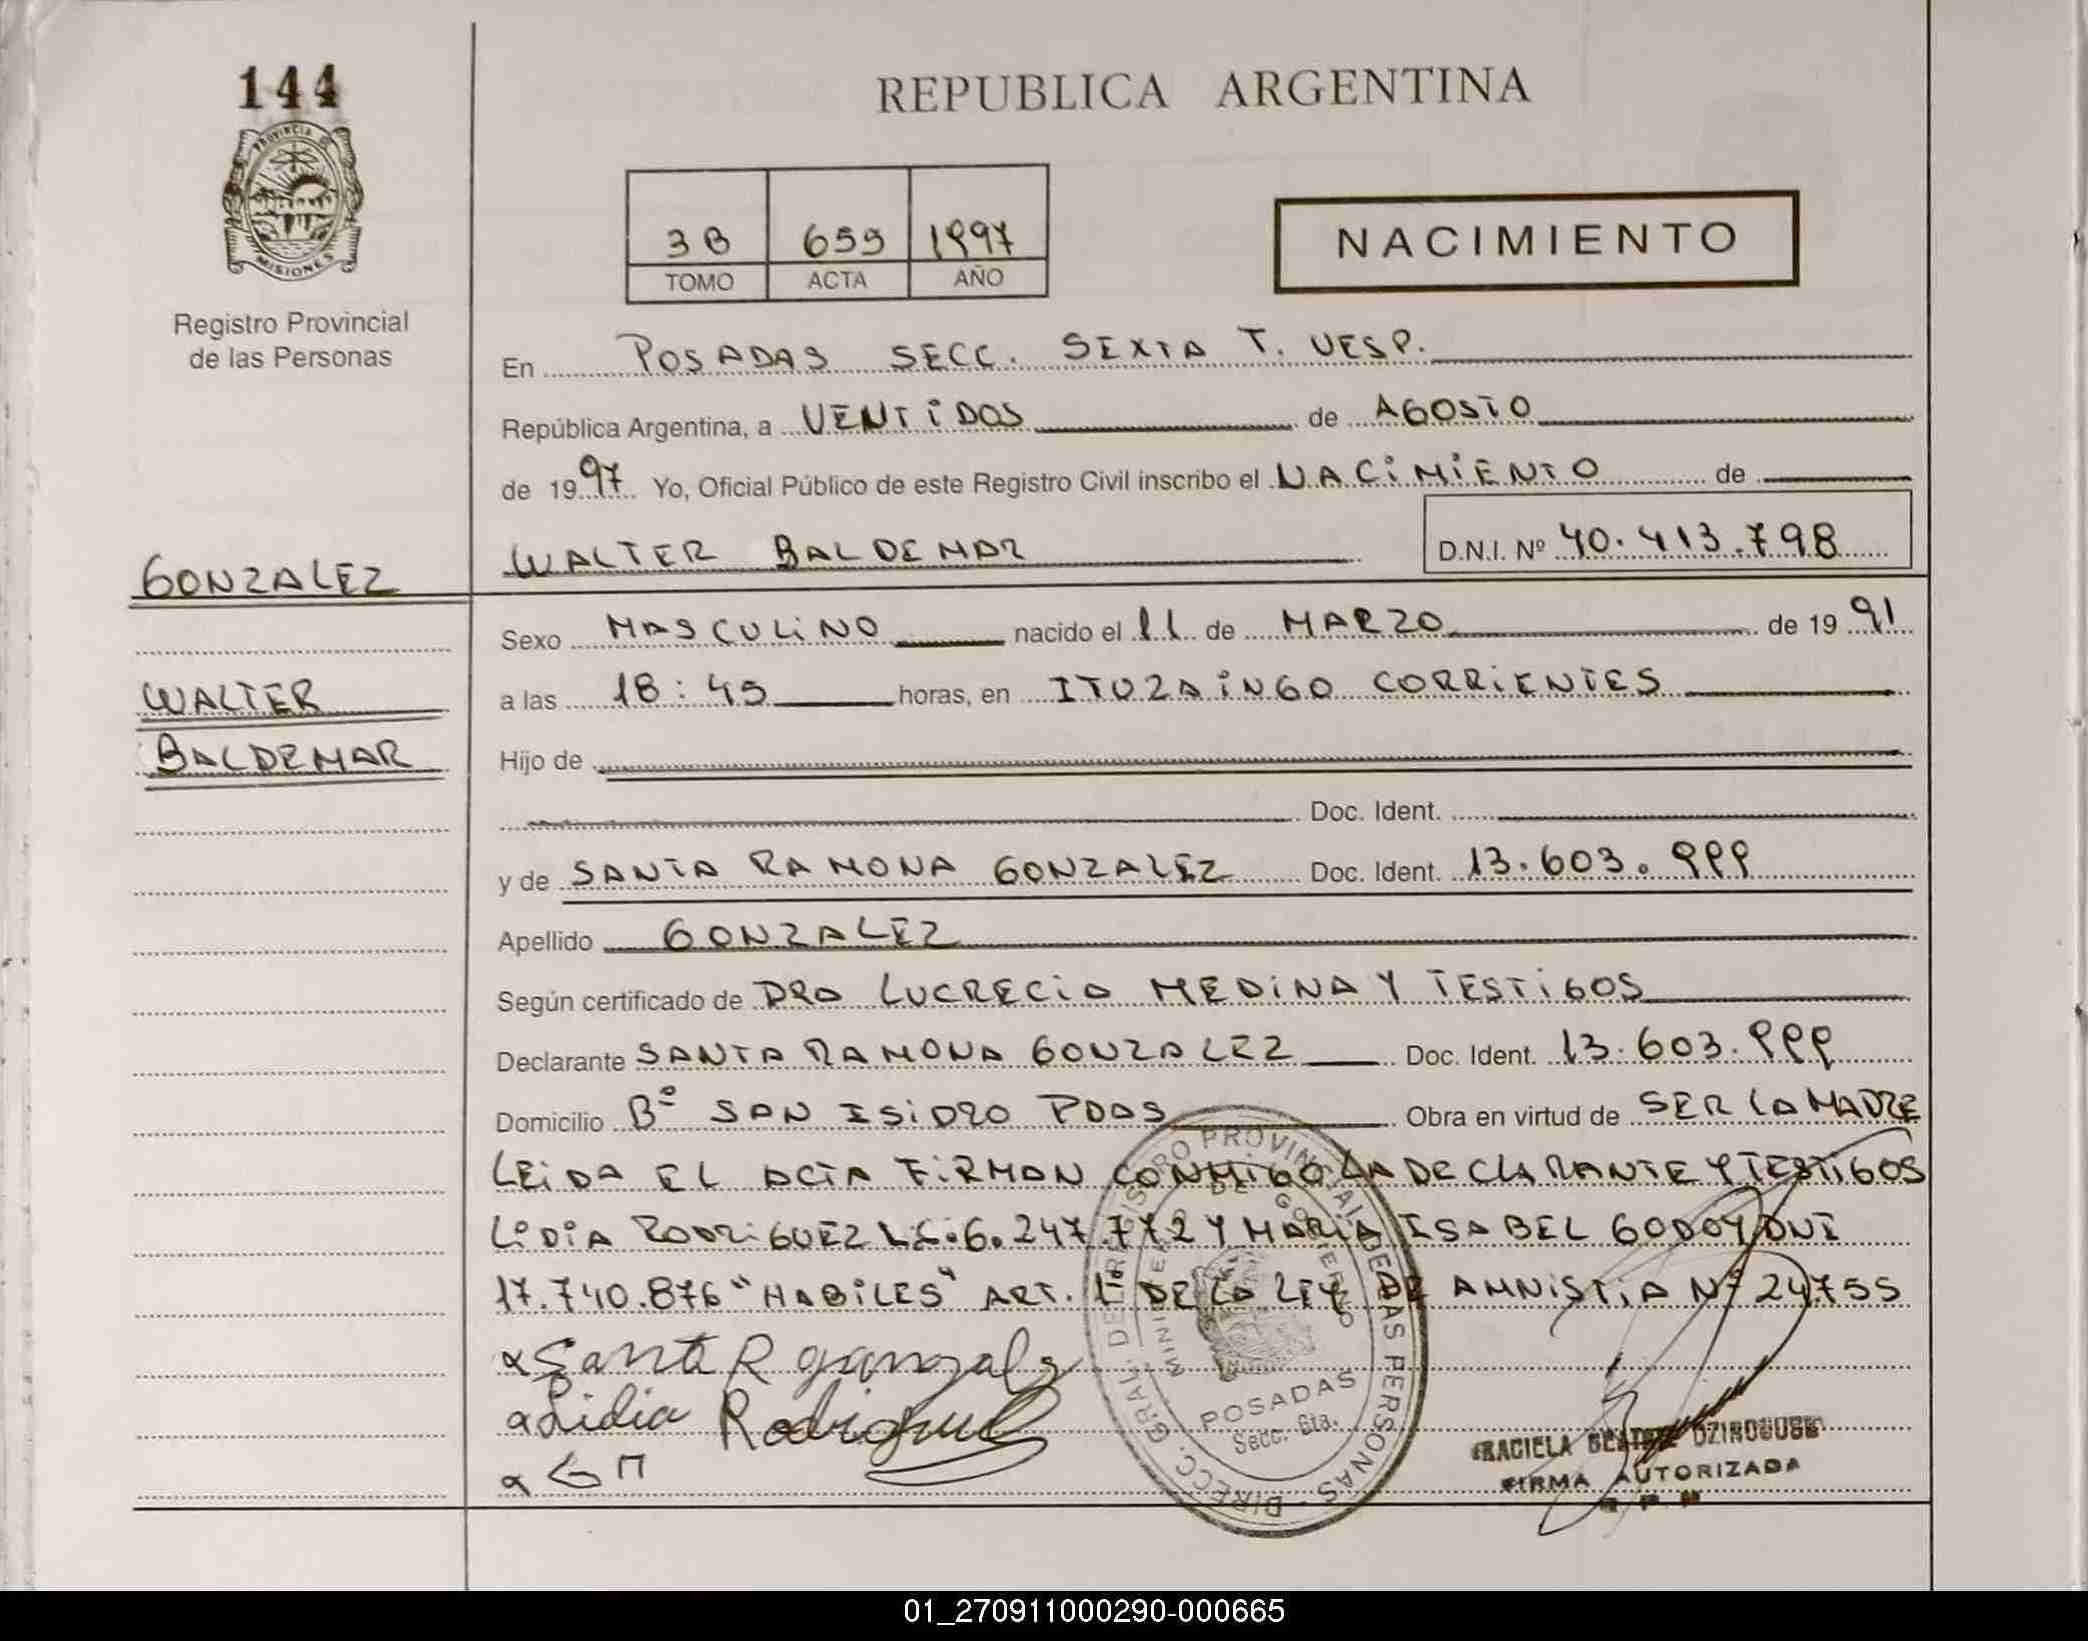 144
REPUBLICA ARGENTINA
PROVINCIA DE
MISIONES
Registro Provincial
de las Personas
3B 659 1997
TOMO ACTA AÑO
NACIMIENTO
En POSADAS SECC. SEXTA T. VESP.
República Argentina, a VENTIDOS de AGOSTO
de 1997 Yo, Oficial Público de este Registro Civil inscribo el NACIMIENTO de
WALTER BALDEMAR D.N.I. Nº 40.413.798
GONZALEZ
WALTER
BALDEMAR
Sexo MASCULINO nacido el 11 de MARZO de 1991
a las 18:45 horas, en ITUZAINGO CORRIENTES
Hijo de
Doc. Ident.
y de SANTA RAMONA GONZALEZ Doc. Ident. 13.603.999
Apellido GONZALEZ
Según certificado de DRA LUCRECIA MEDINA Y TESTIGOS
Declarante SANTA RAMONA GONZALEZ Doc. Ident. 13.603.999
Domicilio Bº SAN ISIDRO PDAS Obra en virtud de SER LA MADRE
LEIDA EL ACTA FIRMAN CONMIGO LA DECLARANTE Y TESTIGOS
LIDIA RODRIGUEZ L.C. 6.247.772 Y MARIA ISABEL GODOY DNI
17.740.876 "HABILES" ART. 1º DE LA LEY DE AMNISTIA Nº 24755
Santa R
Lidia Rodriguez
G M
DIRECC. GRAL. DEL REGISTRO PROVINCIAL DE LAS PERSONAS
MINISTERIO DE GOBIERNO
POSADAS
Secc. 6ta.
GRACIELA BEATRIZ
FIRMA AUTORIZADA
R P P
01_270911000290-000665